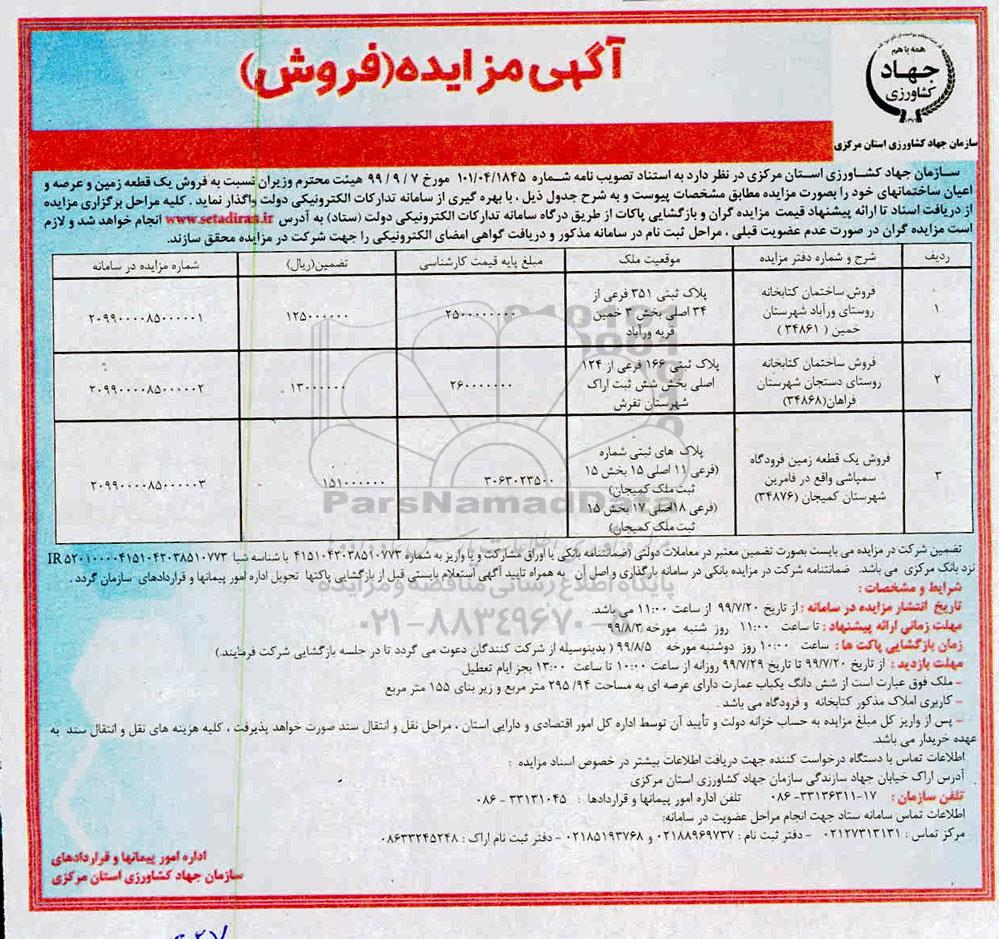 همه با هم
جهاد
کشاورزی
سازمان جهاد کشاورزی استان مرکزی
آگهی مزایده(فروش)
سازمان جهاد کشاورزی استان مرکزی در نظر دارد به استناد تصویب نامه شماره ۱۰۱/۰۴/۱۸۴۵ مورخ ۷ / ۹ / ۹۹ هیئت محترم وزیران نسبت به فروش یک قطعه زمین و عرصه و
اعیان ساختمانهای خود را بصورت مزایده مطابق مشخصات پیوست و به شرح جدول ذیل ، با بهره گیری از سامانه تدارکات الکترونیکی دولت واگذار نماید . کلیه مراحل برگزاری مزایده
از دریافت اسناد تا ارائه پیشنهاد قیمت مزایده گران و بازگشایی پاکات از طریق درگاه سامانه تدارکات الکترونیکی دولت (ستاد) به آدرس www.setadiran.ir انجام خواهد شد و لازم
است مزایده گران در صورت عدم عضویت قبلی ، مراحل ثبت نام در سامانه مذکور و دریافت گواهی امضای الکترونیکی را جهت شرکت در مزایده محقق سازند.
ردیف شرح و شماره دفتر مزایده موقعیت ملک مبلغ پایه قیمت کارشناسی تضمین(ریال) شماره مزایده در سامانه
۱ فروش ساختمان کتابخانه روستای ورآباد شهرستان خمین ( ۳۴۸۶۱ ) پلاک ثبتی ۳۵۱ فرعی از ۳۴ اصلی بخش ۳ خمین قریه ورآباد ۲۵۰۰۰۰۰۰۰۰ ۱۲۵۰۰۰۰۰۰ ۲۰۹۹۰۰۰۰۸۵۰۰۰۰۰۱
۲ فروش ساختمان کتابخانه روستای دستجان شهرستان فراهان(۳۴۸۶۸) پلاک ثبتی ۱۶۶ فرعی از ۱۲۴ اصلی بخش شش ثبت اراک شهرستان تفرش ۲۶۰۰۰۰۰۰۰ ۱۳۰۰۰۰۰۰ ۲۰۹۹۰۰۰۰۸۵۰۰۰۰۰۲
۳ فروش یک قطعه زمین فرودگاه سمپاشی واقع در فامرین شهرستان کمیجان (۳۴۸۷۶) پلاک های ثبتی شماره (فرعی ۱۱ اصلی ۱۵ بخش ۱۵ ثبت ملک کمیجان) (فرعی ۱۸اصلی ۱۷ بخش ۱۵ ثبت ملک کمیجان) ۳۰۶۳۰۲۳۵۰۰ ۱۵۱۰۰۰۰۰۰ ۲۰۹۹۰۰۰۰۸۵۰۰۰۰۰۳
ParsNamadData
پایگاه اطلاع رسانی مناقصه و مزایده
۰۲۱-۸۸۳۴۹۶۷۰
تضمین شرکت در مزایده می بایست بصورت تضمین معتبر در معاملات دولتی (ضمانتنامه بانکی یا اوراق مشارکت و یا واریز به شماره ۴۱۵۱۰۴۲۰۳۸۵۱۰۷۷۳ با شناسه شبا IR ۵۲۰۱۰۰۰۰۴۱۵۱۰۴۲۰۳۸۵۱۰۷۷۳
نزد بانک مرکزی می باشد. ضمانتنامه شرکت در مزایده بانکی در سامانه بارگذاری و اصل آن به همراه تایید آگهی استعلام بایستی قبل از بازگشایی پاکتها تحویل اداره امور پیمانها و قراردادهای سازمان گردد .
شرایط و مشخصات :
تاریخ انتشار مزایده در سامانه : از تاریخ ۹۹/۷/۲۰ از ساعت ۱۱:۰۰ می باشد.
مهلت زمانی ارائه پیشنهاد : تا ساعت ۱۱:۰۰ روز شنبه مورخه ۹۹/۸/۳
زمان بازگشایی پاکت ها : ساعت ۱۰:۰۰ روز دوشنبه مورخه ۹۹/۸/۵ ( بدینوسیله از شرکت کنندگان دعوت می گردد تا در جلسه بازگشایی شرکت فرمایند.)
مهلت بازدید : از تاریخ ۹۹/۷/۲۰ تا تاریخ ۹۹/۷/۲۹ روزانه از ساعت ۱۰:۰۰ تا ساعت ۱۳:۰۰ بجز ایام تعطیل
- ملک فوق عبارت است از شش دانگ یکباب عمارت دارای عرصه ای به مساحت ۲۹۵/۹۴ متر مربع و زیر بنای ۱۵۵ متر مربع
- کاربری املاک مذکور کتابخانه و فرودگاه می باشد .
- پس از واریز کل مبلغ مزایده به حساب خزانه دولت و تأیید آن توسط اداره کل امور اقتصادی و دارایی استان ، مراحل نقل و انتقال سند صورت خواهد پذیرفت ، کلیه هزینه های نقل و انتقال سند به
عهده خریدار می باشد.
اطلاعات تماس با دستگاه درخواست کننده جهت دریافت اطلاعات بیشتر در خصوص اسناد مزایده :
آدرس اراک خیابان جهاد سازندگی سازمان جهاد کشاورزی استان مرکزی
تلفن سازمان : ۱۷-۳۳۱۳۶۳۱۱- ۰۸۶ تلفن اداره امور پیمانها و قراردادها : ۳۳۱۳۱۰۴۵ - ۰۸۶
اطلاعات تماس سامانه ستاد جهت انجام مراحل عضویت در سامانه:
مرکز تماس : ۰۲۱۲۷۳۱۳۱۳۱ - دفتر ثبت نام : ۰۲۱۸۸۹۶۹۷۳۷ و ۰۲۱۸۵۱۹۳۷۶۸ - دفتر ثبت نام اراک : ۰۸۶۳۳۲۴۵۲۴۸
اداره امور پیمانها و قراردادهای
سازمان جهاد کشاورزی استان مرکزی